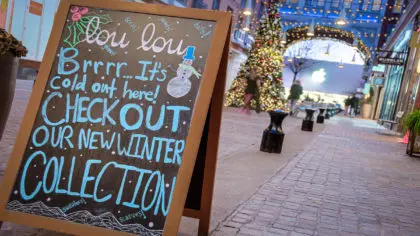 lou lou
Brrrr...It's
Cold out here!
CHECKOUT
OUR NEW WINTER
COLLECTION